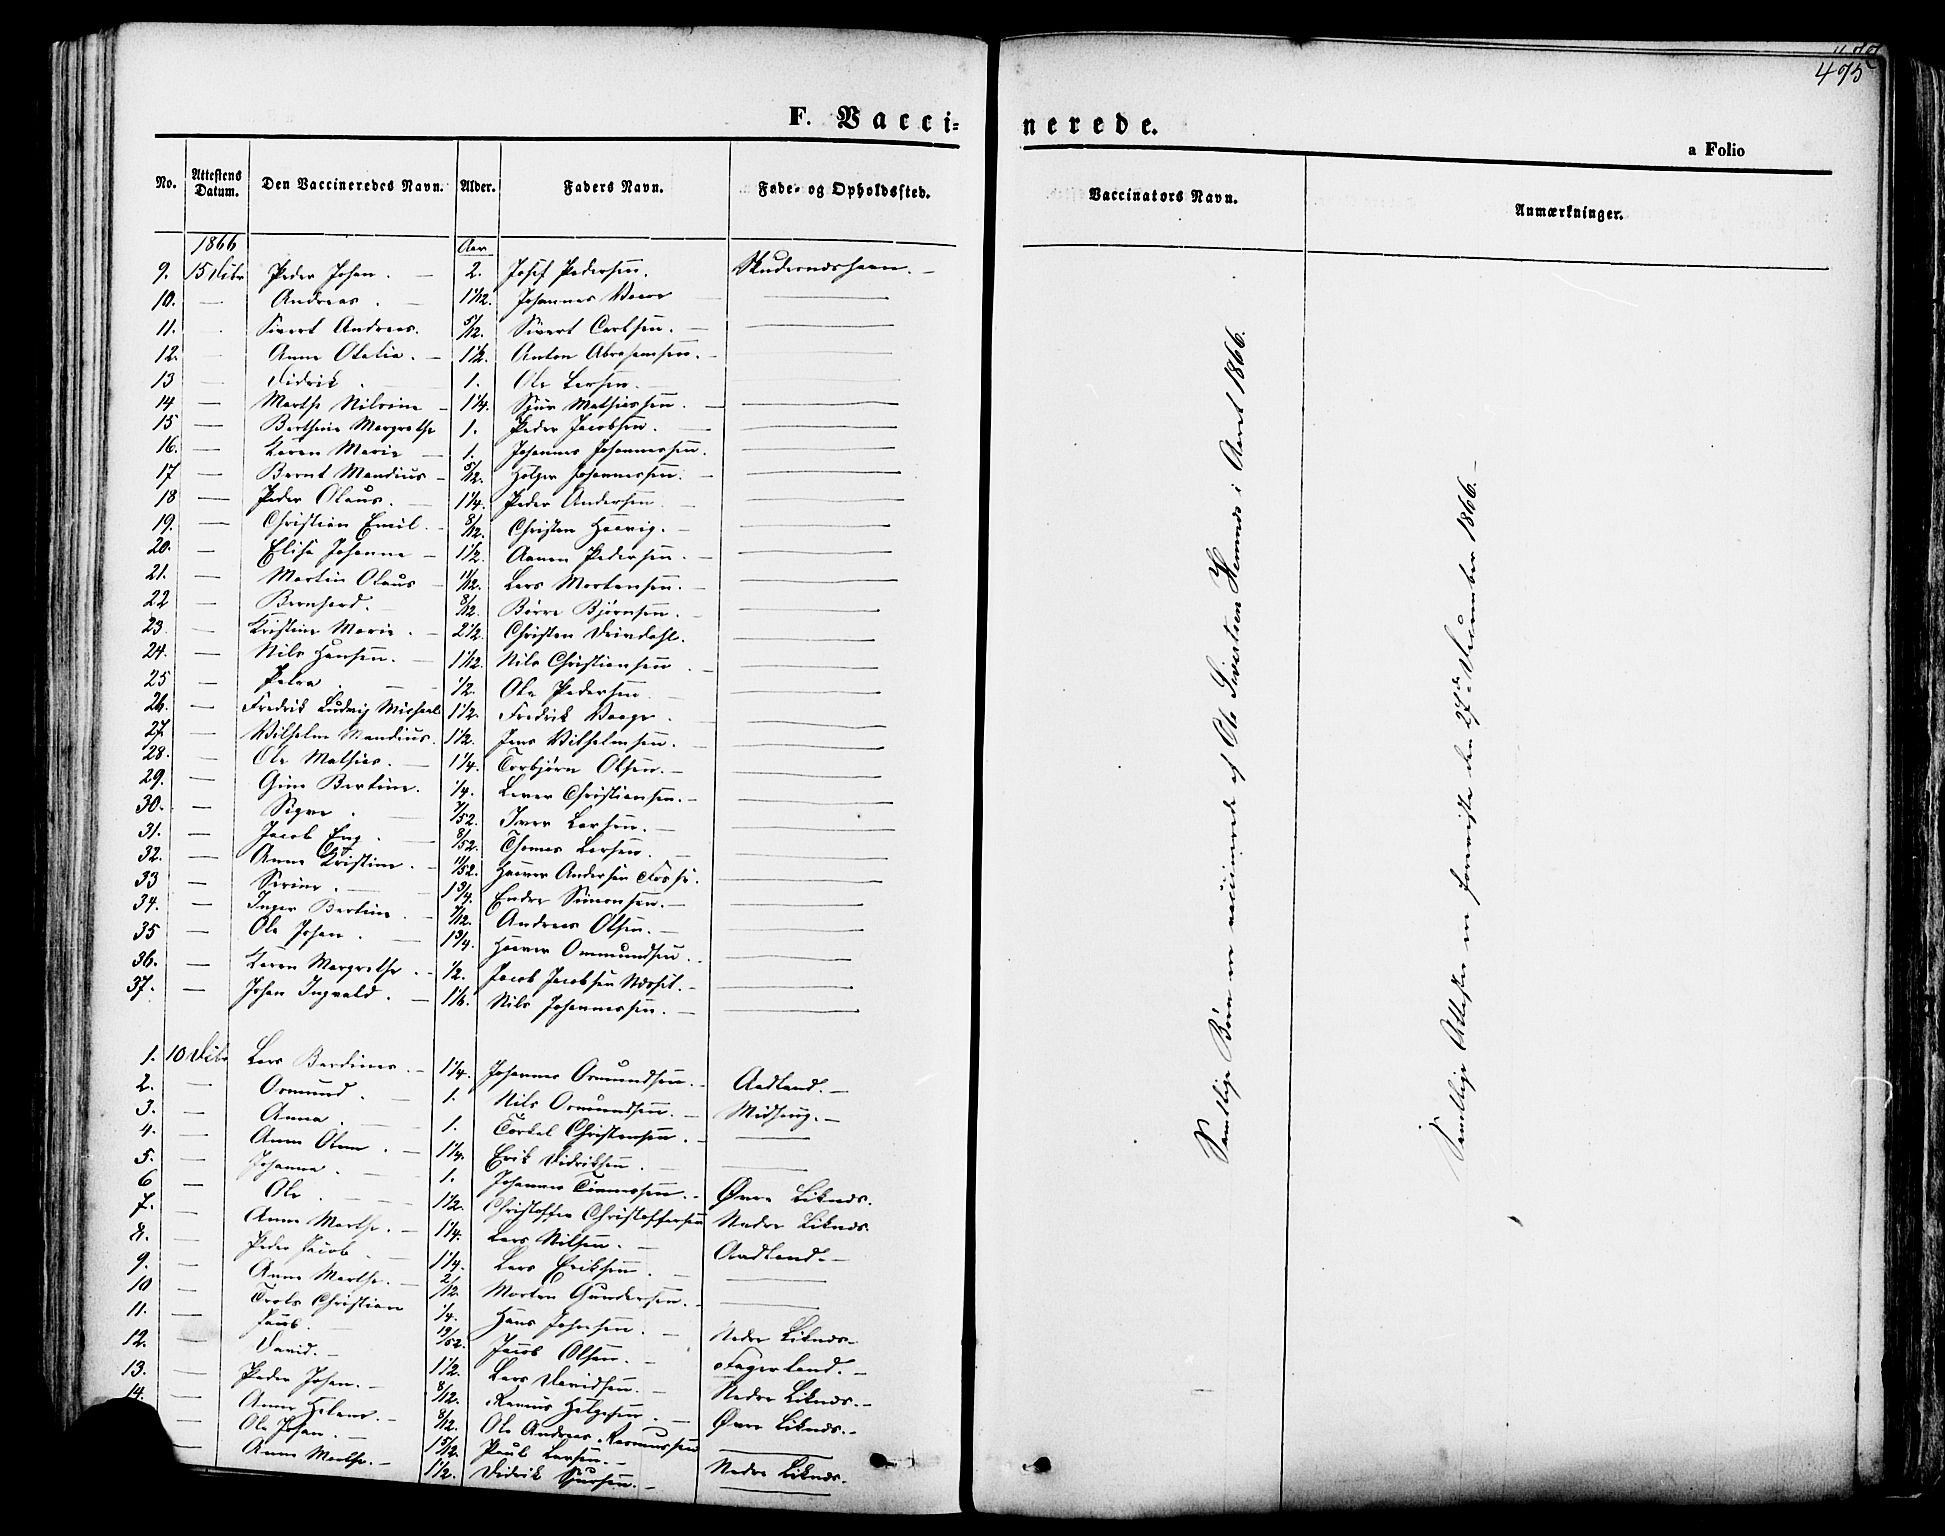 475
F. Vacci=
nerede.
a Folio
No. Attestens Datum. Den Vaccineredes Navn. Alder. Faders Navn. Føde- og Opholdssted.
Vaccinators Navn. Anmærkninger.
1866 Aar
9. 15 Peder Johan. — 2. Josef Pedersen. Skudernæshavn. —
10. — Andreas. 1 1/12. Johannes —
11. Sivert Andreas. 5/12. Sivert Carlsen. —
12. — Anne Otalia. — 1 1/2. Anton Abrahamsen. —
13 — Didrik. — 1. Ole Larsen. —
14 — Marthe — 1 1/4. Sjur Mathiassen. —
15 — Berthine Margrethe 1. Peder Jacobsen. —
16. — Karen Marie — 1. Johannes Johannessen. —
17 — Bernt Mandius — 5/12. Holger Johannessen. —
18 — Peder Olaus. — 1 1/4. Peder Andersen —
19. — Christian Emil. — 8/12. Christen Haavig. —
20. — Elisa Johanne — 1 1/2. Aanen Pedersen. —
21. — Martin Olaus — 11/12. Lars Mortensen. —
22 — Bernhard. — 8/12. Børre Bjørnsen. —
23. — Kristine Marie. — 2 1/2. Christen —
24. — Nils Hansen. — 1 1/12. Nils Christiansen —
25 — Petra. — 1/2. Ole Pedersen —
26. — Fredrik Ludvig Michael 1 1/2. Fredrik Vaage. —
27. — Wilhelm Mandius. 1 1/2. Jens Vilhelmsen. —
28. — Ole Mathias. — 1 1/4. Torbjørn Olsen. —
29. — Gine Bertine. — 1/4. Christiansen. —
30. — Sigve. — 7/52. Iver Larsen. —
31. — Jacob Eng. 8/52. Thomas Larsen. —
32. — Anne Kristine. — 11/52. Haaver Andersen —
33 — Serine. — 1 3/4. Endre Simonsen. —
34. — Inger Bertine. — 7/12. Andreas Olsen. —
35 — Ole Johan. — 1 3/4. Haaver Ommundsen. —
36. — Karen Margrethe. — 1/2. Jacob Jacobsen —
37. — Johan Ingvald. — 1 1/6. Nils Johannessen. —
1. 10 Lars — 1 1/4. Johannes Osmundsen. — Aadland. —
2. — Osmund. — 1. Nils Osmundsen. — Midheug. —
3. — Anna. — 1. Torkel Christensen. —
4. — Anne — 1 1/4. Erik Didriksen. —
5. — Johanna. — 1. Johannes — Øvre Liknæs.
6 — Ole. — 1 1/2. Christoffer Christoffersen Nedre Liknæs.
7. — Anne Marthe. — 1 1/4. Lars Nilsen. — Aadland. —
8. — Peder Jacob. — 1 1/4. Lars Eriksen. —
9. — Anne Marthe. — 2/12. Morten Gundersen. —
10 — Christian 1/4. Hans Johnsen. — Nedre Liknæs. —
11. — Jacob. — Jacob Olsen. — Fagerland. —
12. — David. — 1 1/2. Lars Davidsen. — Nedre Liknæs. —
13. — Peder Johan. — 8/12. Rasmus Helgesen. — Øvre Liknæs. —
14. — Anne Helene. — 8/12. Ole Andreas Rasmussen —
— Ole Johan. — 1 5/12. Paul Larsen. — Nedre Liknæs. —
— Anne Marthe. — 1 1/2. Didrik Sjursen. —
Samtlige Børn ere vaccinerede af Ole Sivertsen Hemnæs i Aaret 1866.
Samtlige Attester ere foreviste den 27de December 1866. —